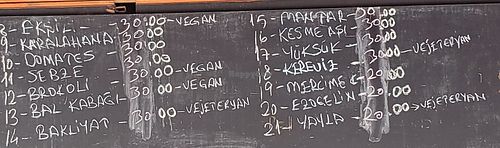 8- EKŞİLİ - 30:00 -VEGAN
9- KARALAHANA 30:00
10- DOMATES - 30:00
11- SEBZE - 30.00 -VEGAN
12- BROKOLİ - 30.00 -VEGAN
13- BAL KABAĞI- 30.00
14- BAKLİYAT - 30.00 -VEJETERYAN
15- MANTAR- 30:00
16- KESME AŞI - 30:00
17- YÜKSÜK- 30.00 -VEJETERYAN
18- KEREVİZ - 30:00
19- MERCİMEK - 20.00
20- EZOGELİN- 20.00 →VEJETERYAN
21- YAYLA - 20.00